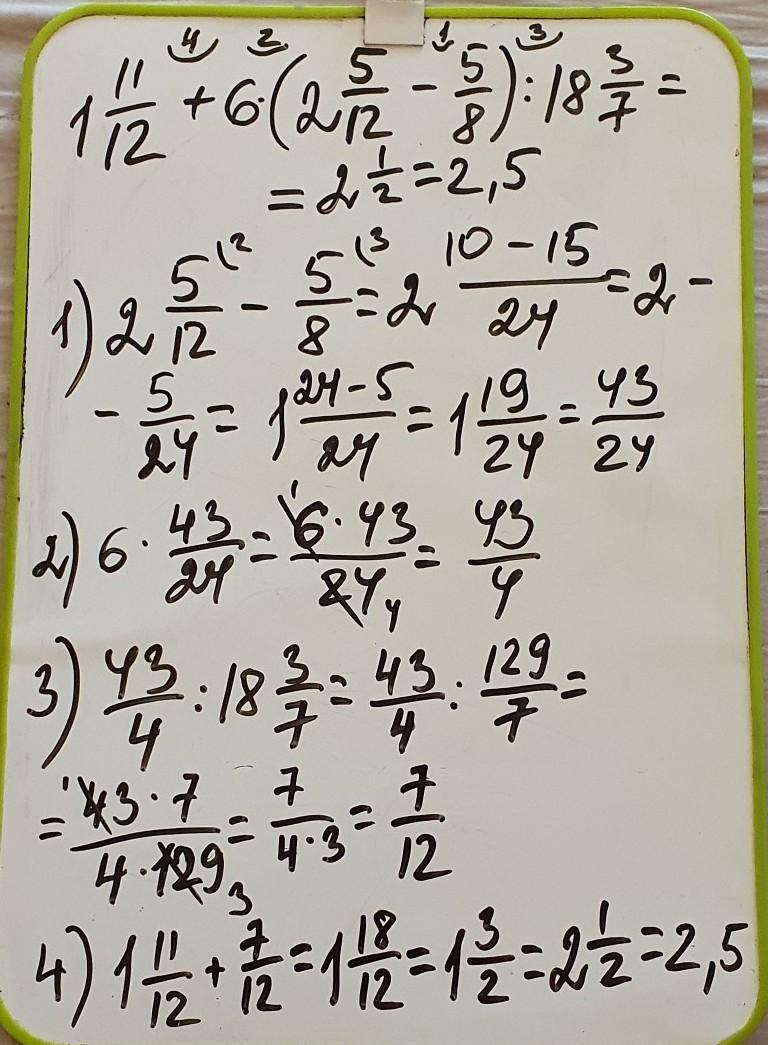 4 2 1 3
1 11/12 + 6·(2 5/12 - 5/8) : 18 3/7 =
= 2 1/2 = 2,5
1) 2 5/12 (2 - 5/8 (3 = 2 10-15/24 = 2 -
- 5/24 = 1 24-5/24 = 1 19/24 = 43/24
2) 6 · 43/24 = 6·43/24 = 43/4
1 4
3) 43/4 : 18 3/7 = 43/4 : 129/7 =
= 43·7/4·129 = 7/4·3 = 7/12
1 3
4) 1 11/12 + 7/12 = 1 18/12 = 1 3/2 = 2 1/2 = 2,5